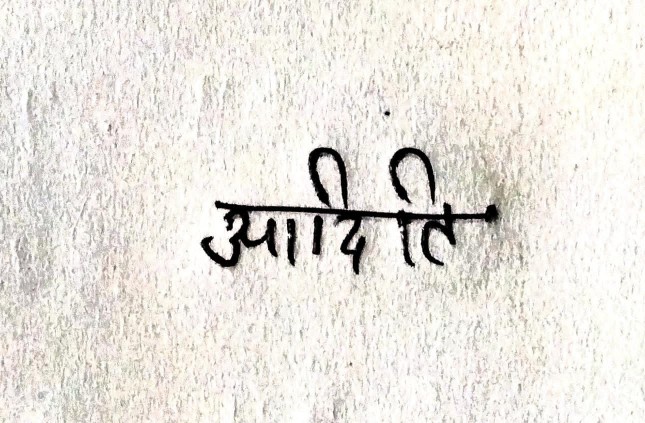 आदिति